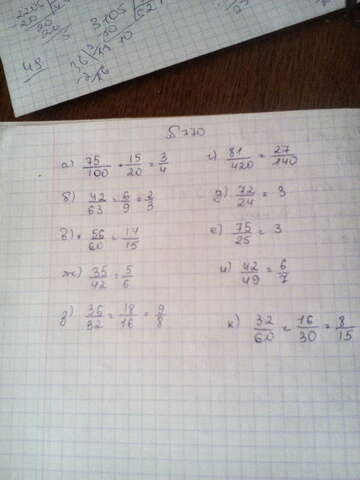 2205
3105
48
10
§ 770
а) 75/100 = 15/20 = 3/4
г) 81/420 = 27/140
б) 42/63 = 6/9 = 2/3
д) 72/24 = 3
в) 56/60 = 14/15
е) 75/25 = 3
ж) 35/42 = 5/6
и) 42/49 = 6/7
з) 36/32 = 18/16 = 9/8
к) 32/60 = 16/30 = 8/15